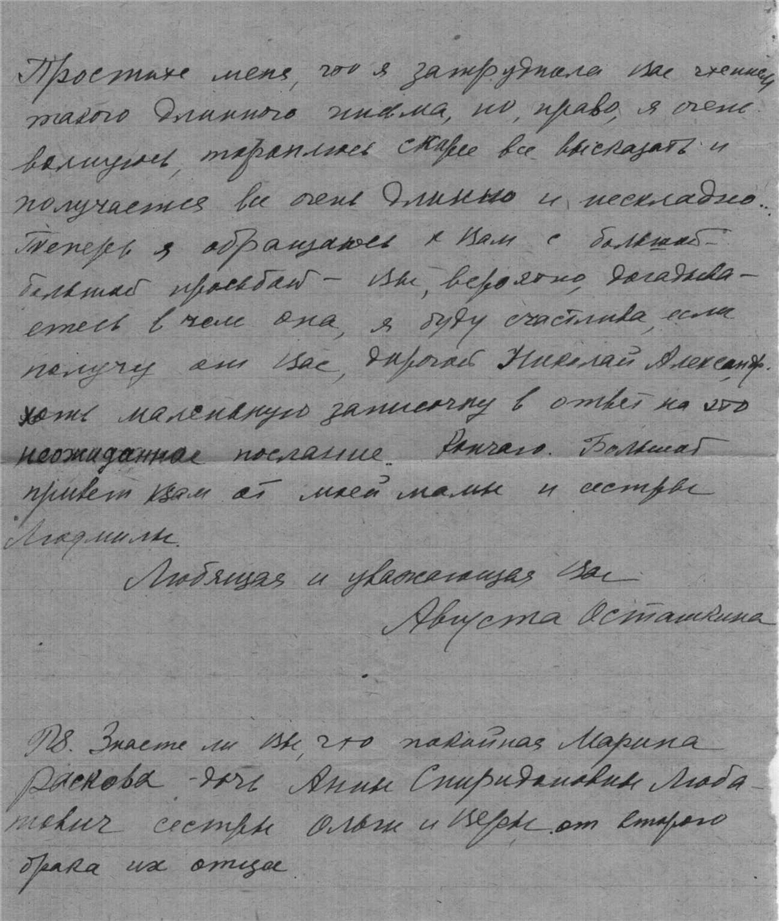 Простите меня, что я затруднила Вас чтением
такого длинного письма, но, право, я очень
волнуюсь, тороплюсь скорее все высказать и
получается все очень длинно и нескладно..
Теперь я обращаюсь к Вам с большой-
большой просьбой – Вы, вероятно, догадыва-
етесь в чем она, я буду счастлива, если
получу от Вас, дорогой Николай Александр.
хоть маленькую записочку в ответ на это
неожиданное послание. Кончаю. Большой
привет Вам от моей мамы и сестры
Людмилы.
Любящая и уважающая Вас
Августа Осташкина
PS. Знаете ли Вы, что покойная Марина
Раскова - дочь Анны Спиридоновны Люба-
тович сестры Ольги и Веры от второго
брака их отца